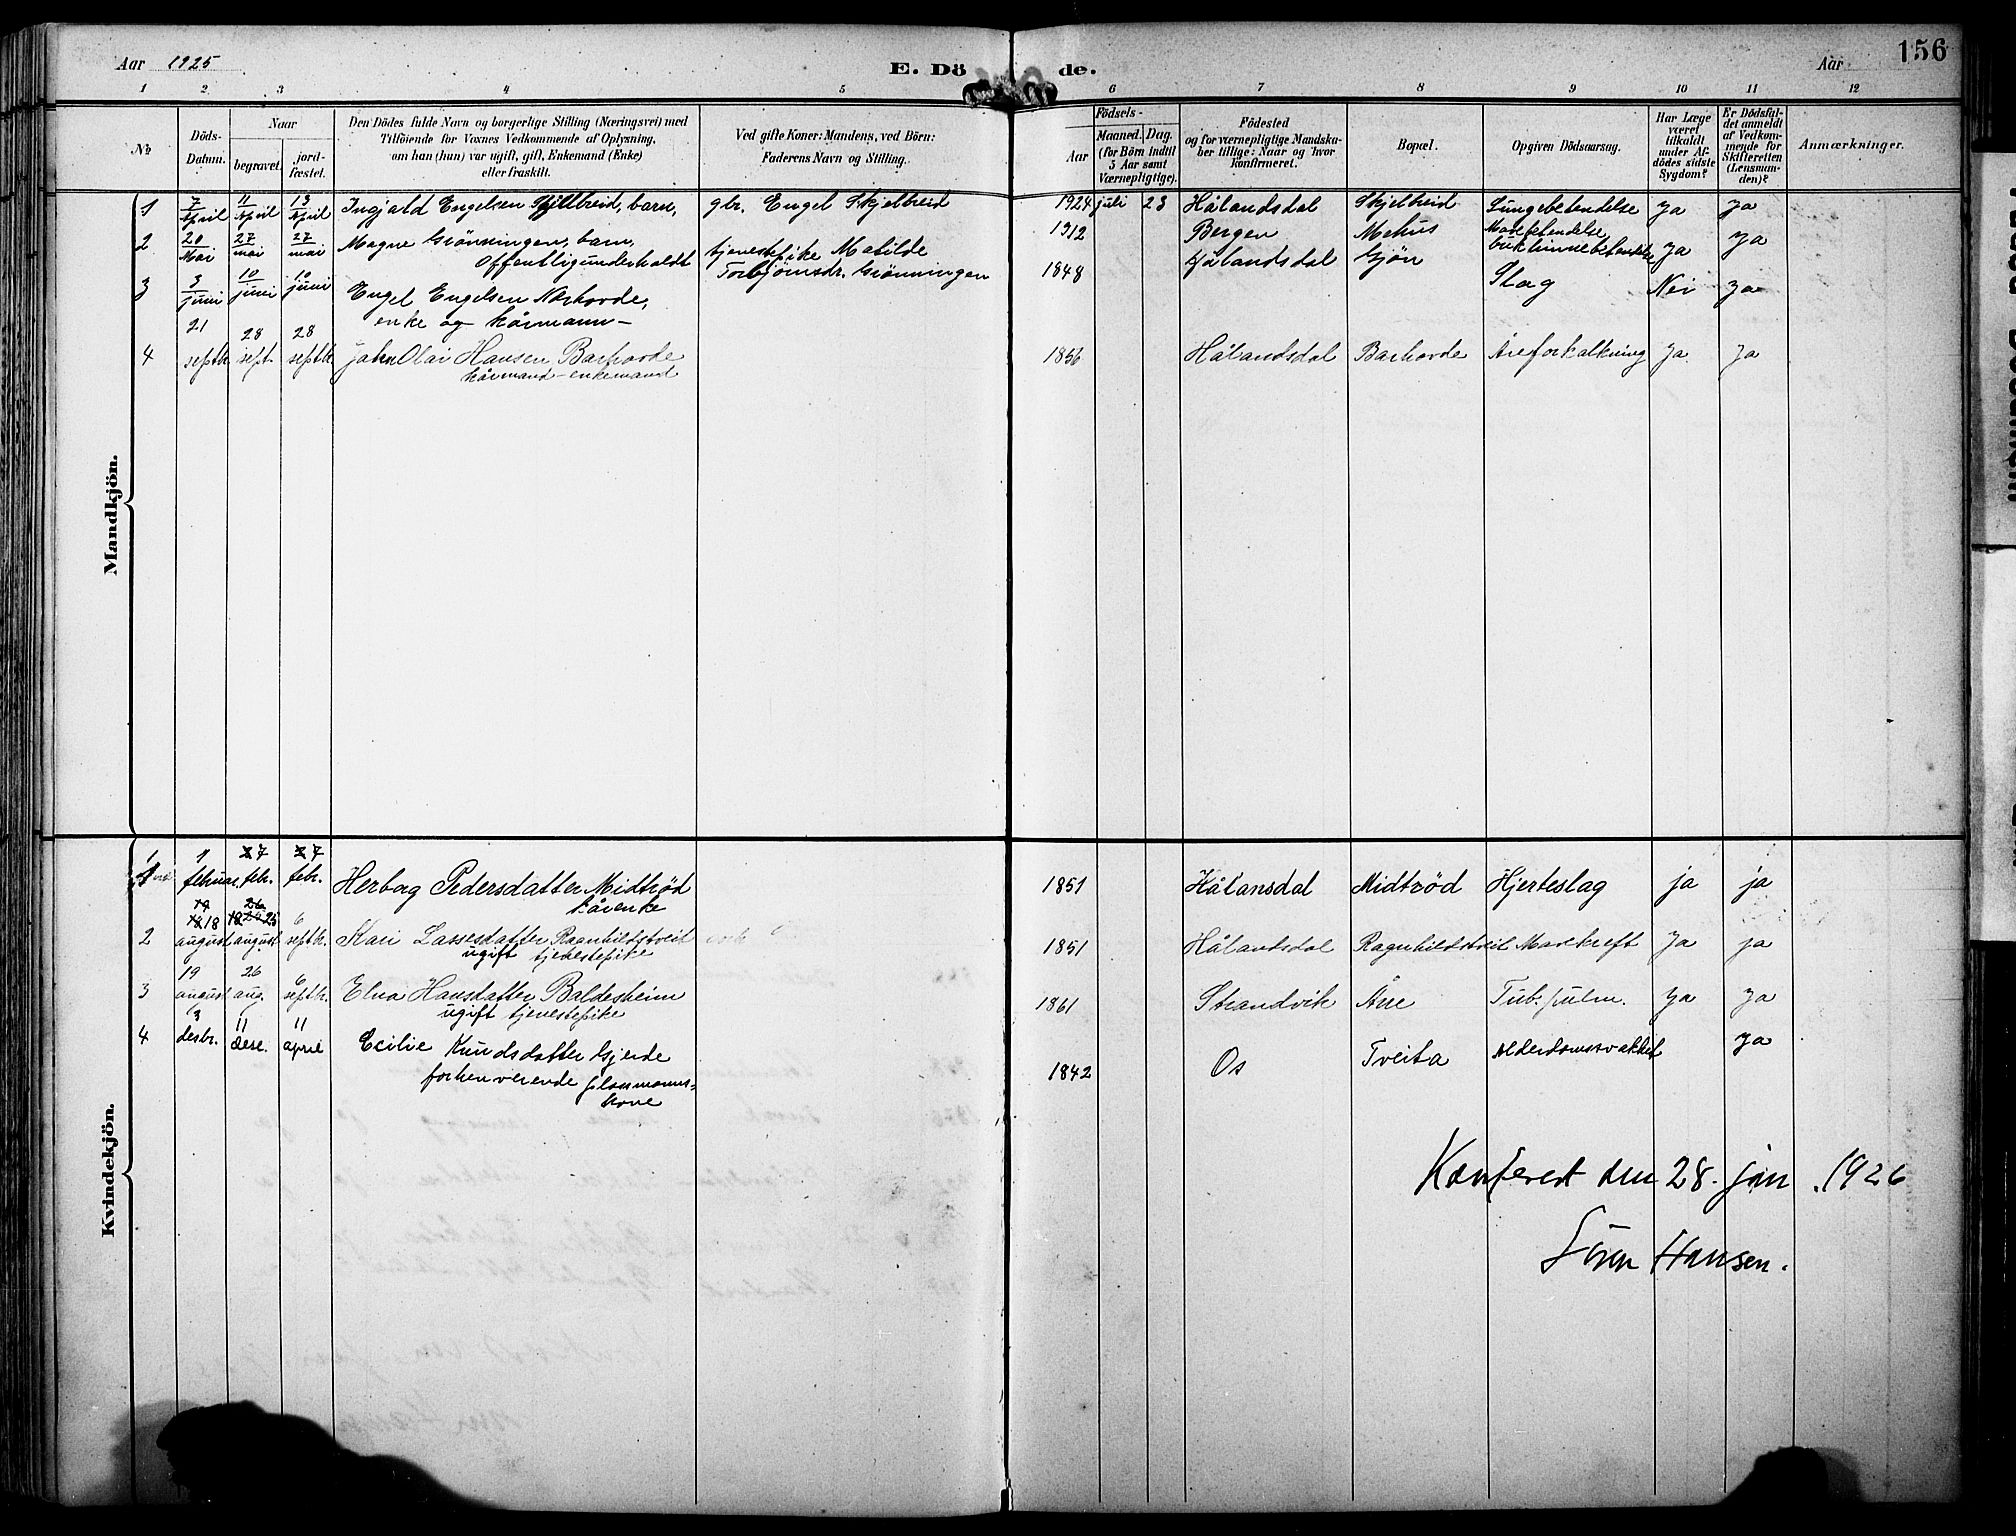 Aar 1925 E. Dö de. Aar 156
1 2 3 4 5 6 7 8 9 10 11 12
No
Döds-Datum.
Naar begravet jord-fæstet.
Den Dödes fulde Navn og borgerlige Stilling (Næringsvei) med
Tilföiende for Voxnes Vedkommende af Oplysning,
om han (hun) var ugift, gift, Enkemand (Enke)
eller fraskilt.
Ved gifte Koner: Mandens, ved Börn:
Faderens Navn og Stilling.
Födsels-
Aar Maaned. Dag.
(for Börn indtil
5 Aar samt
Værnepligtige).
Födested
og for værnepligtige Mandska-
ber tillige: Naar og hvor
konfirmeret.
Bopæl.
Opgiven Dödsaarsag.
Har Læge
været
tilkaldt
under Af-
dödes sidste
Sygdom?
Er Dödsfal-
det anmeldt
af Vedkom-
mende for
Skifteretten
(Lensman-
den)?
Anmærkninger.
Mandkjön.
1 7 April 11 April 13 April Ingjald Engelsen Skjelbreid, barn, gbr. Engel Skjelbreid 1924 juli 23 Hålandsdal Skjelbreid Lungebetendelse Ja Ja
2 20 Mai 27 mai 27 mai Magne Grönningen, barn, tjenestepike Matilde 1912 Bergen Mehus
Offentlig underholdt Torbjörnsdr. Grönningen bukhinnebetendelse Ja Ja
3 3 juni 10 juni 10 juni Engel Engelsen Nørhovde, 1848 Hålandsdal Gjön Slag Nei Ja
enke og kårmann-
4 21 septbr. 28 sept. 28 septbr. Johan Olai Hansen Barhovde 1856 Hålandsdal Barhovde Åreforkalkning Ja Ja
kårmand - enkemand
Kvindekjön.
1 1 februar 7 febr. 7 febr. Herborg Pedersdatter Midtröd 1851 Hålansdal Midtröd Hjerteslag ja ja
kårenke
2 18 august 25 august 6 septbr. Kari Lassesdatter Ragnhildstveit 1851 Hålandsdal Ragnhildstveit Mavekreft Ja ja
ugift tjenestepike
3 19 august 26 aug. 6 septbr. Elna Hansdatter Baldesheim 1861 Strandvik Åre Tub. pulm. Ja Ja
ugift tjenestepike
4 3 desbr. 11 dese. 11 april Cecilie Knudsdatter Gjerde 1842 Os Tveita Alderdomssvakhet Ja
forhenverende plassmanns-
kone
Konferert den 28. jan .1926
Sören Hansen.